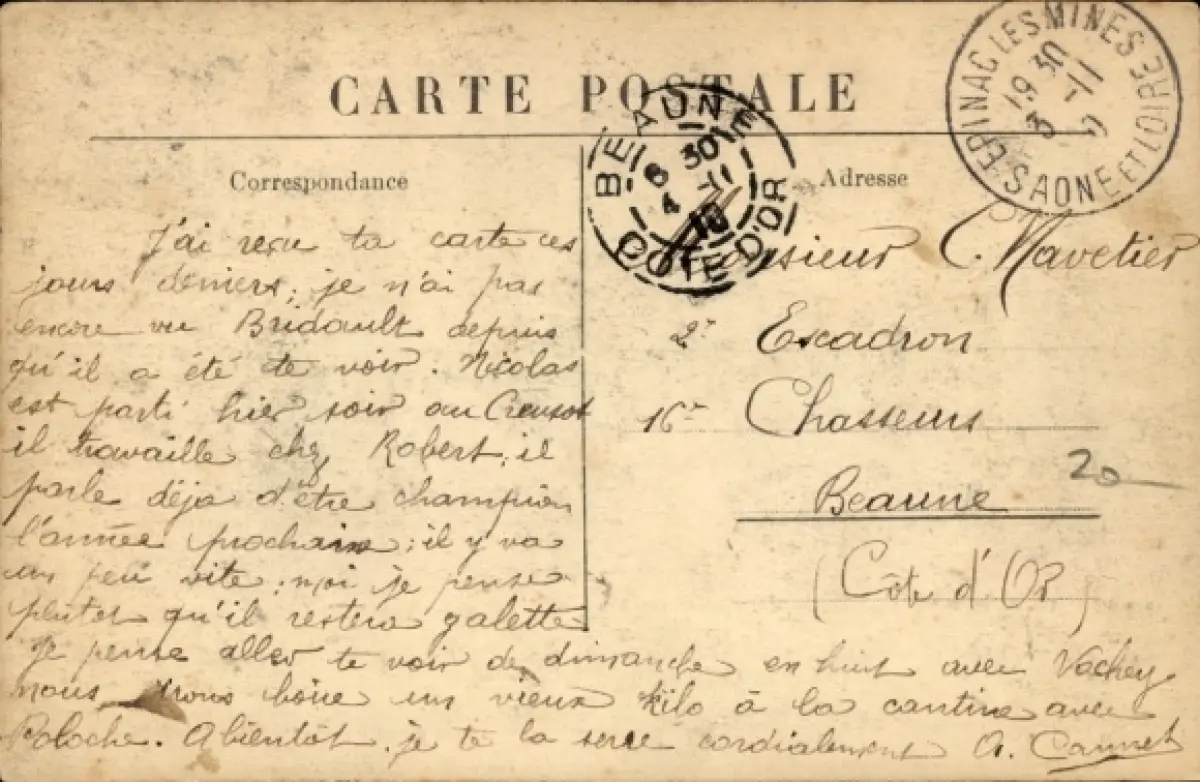 CARTE POSTALE
EPINAC LES MINES
SAONE ET LOIRE
19 30
3 -11
BEAUNE
COTE D'OR
6 30
4 -11
10
Correspondance
Adresse
J'ai reçu ta carte ces
jours deniers; je n'ai pas
encore vu Bridault depuis
qu'il a été te voir. Nicolas
est parti hier soir au Creusot
il travaille chez Robert; il
parle déja d'être champion
l'année prochaine; il y va
un peu vite; moi je pense
plutot qu'il restera galette
Je pense aller te voir de dimanche en huit avec Vachey
nous irons boire un vieux kilo à la cantine avec
Poloche. A bientôt, je te la serre cordialement A. Cannet
Monsieur C. Navetier
2e Escadron
16e Chasseurs
Beaune
(Côte d'Or)
20